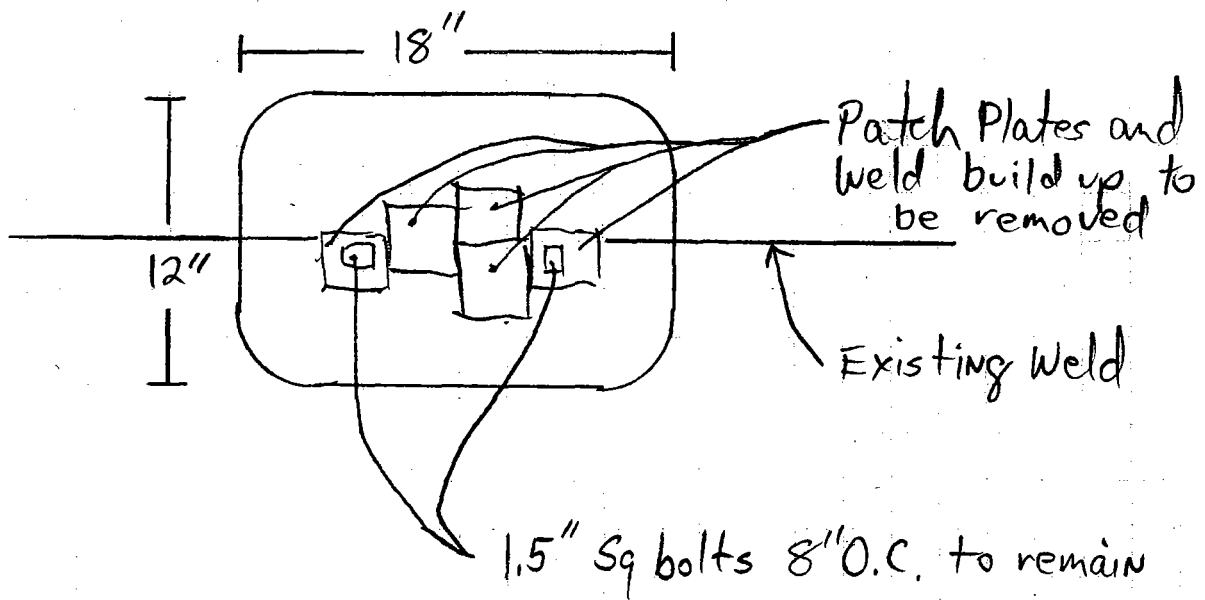 18"
Patch Plates and
Weld build up to
be removed
12"
Existing Weld
1.5" Sq bolts 8" O.C. to remain